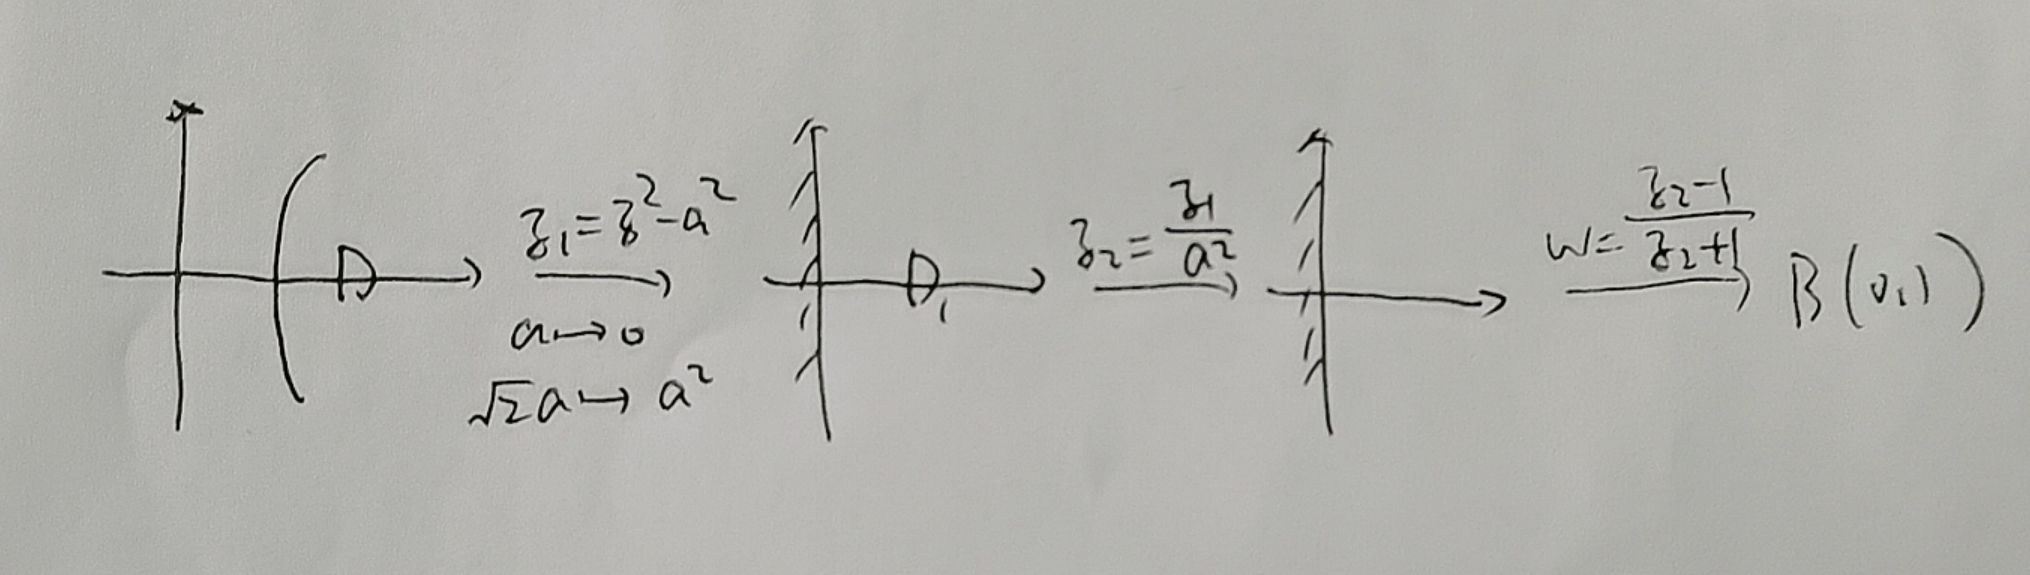 D
z₁=z²-a²
a↦0
√2a↦a²
D₁
z₂=z₁/a²
w=(z₂-1)/(z₂+1)
B(0,1)